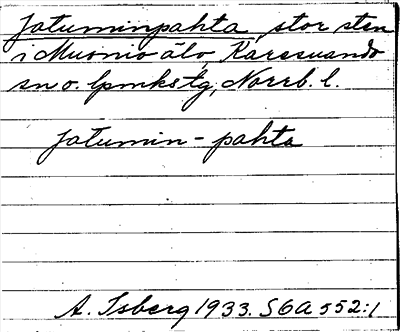 Jatuminpahta, stor sten
i Muonio älv, Karesuando
sn o. lpmkstg, Norrb. l.
Jatumin - pahta
A. Isberg 1933. S6A 552:1